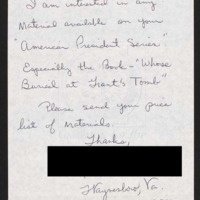 I am interested in any
Material available on your
"American President Series"
Especially the Book - "Whose
Buried at Grant's Tomb"
Please send your price
list of Materials.
Thanks,
Waynesboro, Va.